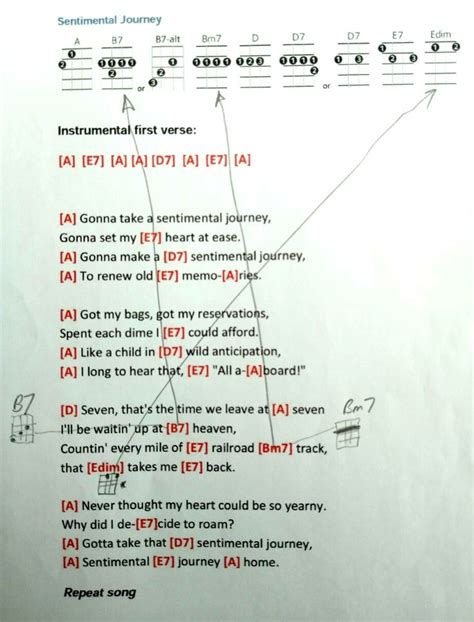 Sentimental Journey
A B7 B7-alt Bm7 D D7 D7 E7 Edim
or or
Instrumental first verse:
[A] [E7] [A] [A] [D7] [A] [E7] [A]
[A] Gonna take a sentimental journey,
Gonna set my [E7] heart at ease.
[A] Gonna make a [D7] sentimental journey,
[A] To renew old [E7] memo-[A]ries.
[A] Got my bags, got my reservations,
Spent each dime I [E7] could afford.
[A] Like a child in [D7] wild anticipation,
[A] I long to hear that, [E7] "All a-[A]board!"
B7 [D] Seven, that's the time we leave at [A] seven Bm7
I'll be waitin' up at [B7] heaven,
Countin' every mile of [E7] railroad [Bm7] track,
that [Edim] takes me [E7] back.
[A] Never thought my heart could be so yearny.
Why did I de-[E7]cide to roam?
[A] Gotta take that [D7] sentimental journey,
[A] Sentimental [E7] journey [A] home.
Repeat song